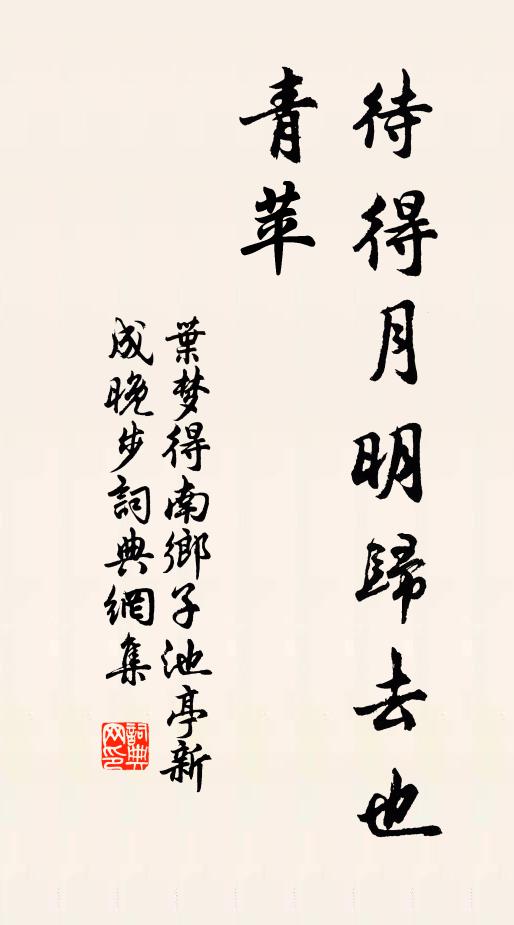 待得月明歸去也
青苹
葉梦得南鄉子池亭新
成晚步詞典網集
詞典
网印